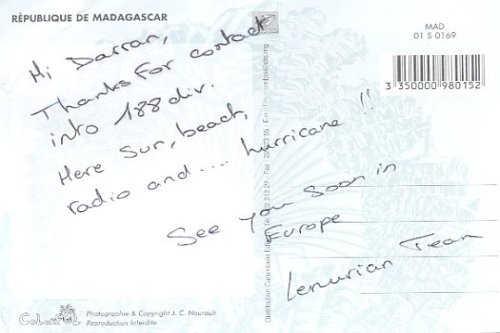 RÉPUBLIQUE DE MADAGASCAR
MAD
01 S 0169
3 350000 980152
Hi Darran,
Thanks for contact
into 188 div.
Here Sun, beach,
radio and .... hurricane !!
See you Soon in
Europe
Lemurian Team
Photographie & Copyright J. C. Nourault
Reproduction Interdite